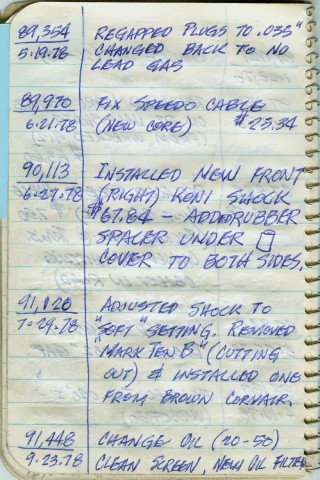 89,354 REGAPPED PLUGS TO .035"
5.19.78 CHANGED BACK TO NO
LEAD GAS
89,970 FIX SPEEDO CABLE
6.21.78 (NEW CORE) $25.34
90,113 INSTALLED NEW FRONT
6.27.78 (RIGHT) KONI SHOCK
$67.84 - ADDED RUBBER
SPACER UNDER
COVER TO BOTH SIDES.
91,020 ADJUSTED SHOCK TO
7.29.78 "SOFT" SETTING. REMOVED
"MARK TEN B" (CUTTING
OUT) & INSTALLED ONE
FROM BROWN CORVAIR.
91,448 CHANGE OIL (20-50)
9.23.78 CLEAN SCREEN, NEW OIL FILTER